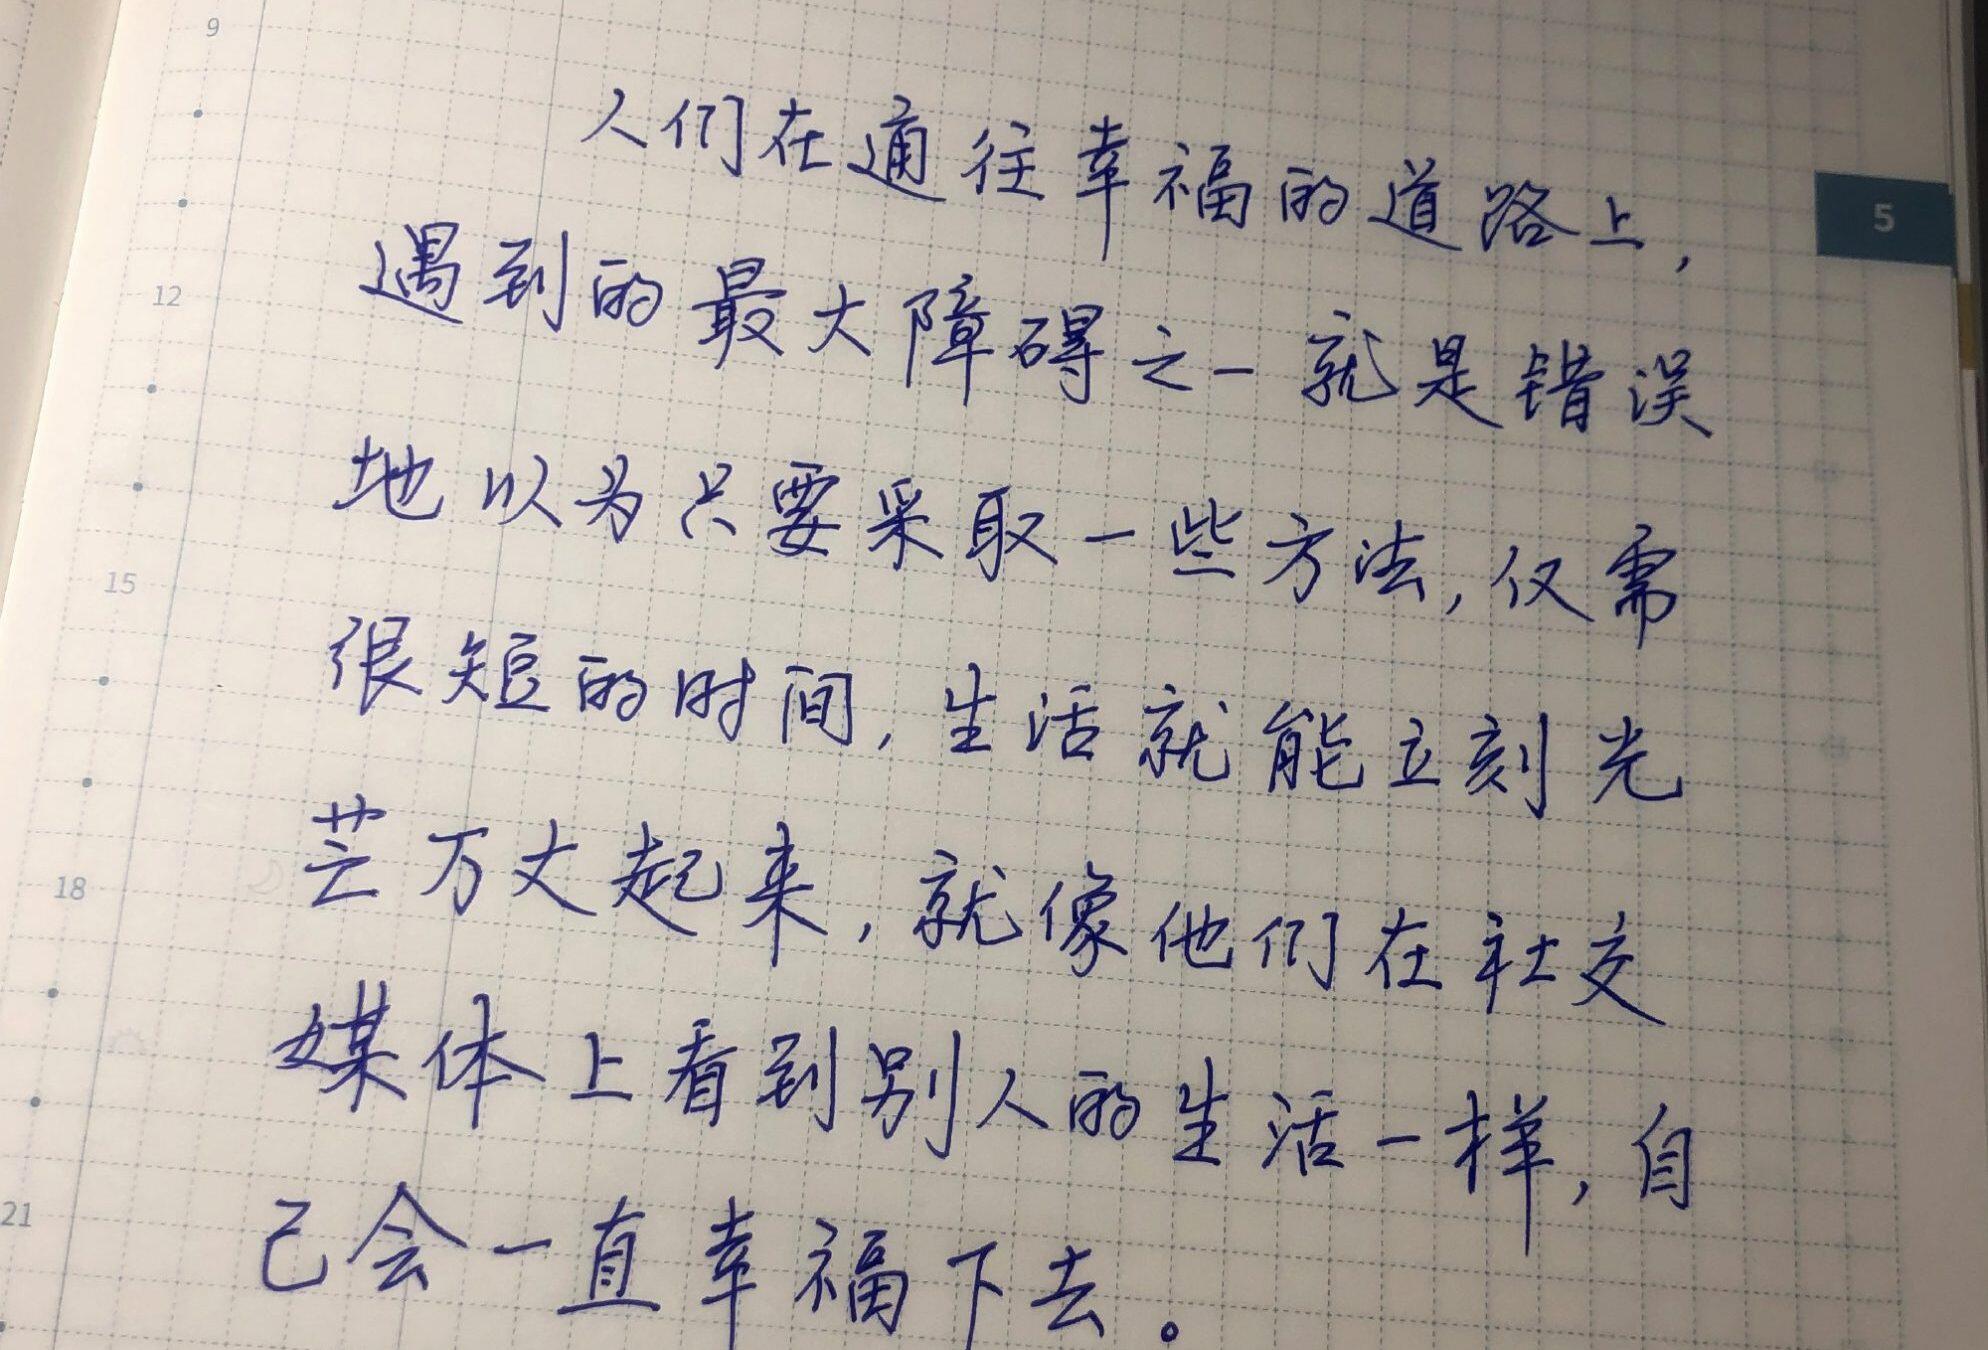 9
人们在通往幸福的道路上,
5
遇到的最大障碍之一就是错误
12
地以为只要采取一些方法,仅需
15
很短的时间,生活就能立刻光
芒万丈起来,就像他们在社交
18
媒体上看到别人的生活一样,自
21
己会一直幸福下去。